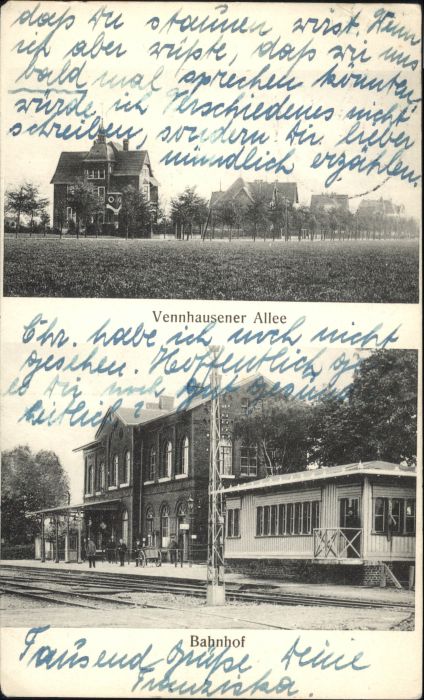 daß Du staunen wirst. Wenn
ich aber wüßte, daß wir uns
bald mal sprechen könnten,
würde ich Verschiedenes nicht
schreiben, sondern Dir lieber
mündlich erzählen.
Vennhausener Allee
Chr. habe ich noch nicht
gesehen. Hoffentlich geht
es Dir noch gut gesund
heitlich?
Bahnhof
Tausend Grüße Deine
Franziska.